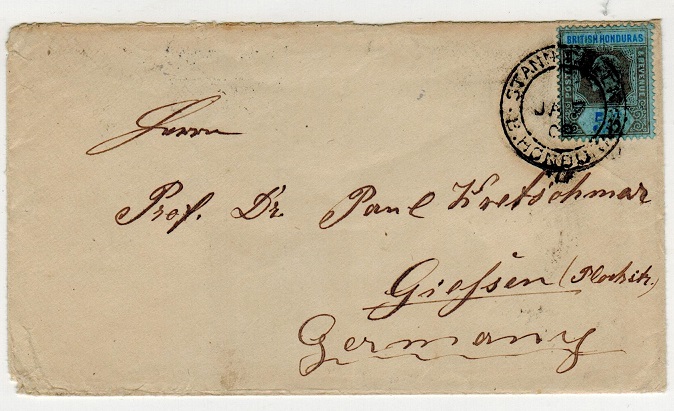 BRITISH HONDURAS
POSTAGE & REVENUE
5
STANN
JA
B. HONDURAS
Herrn
Prof. Dr. Paul Kretschmar
Giessen
Germany